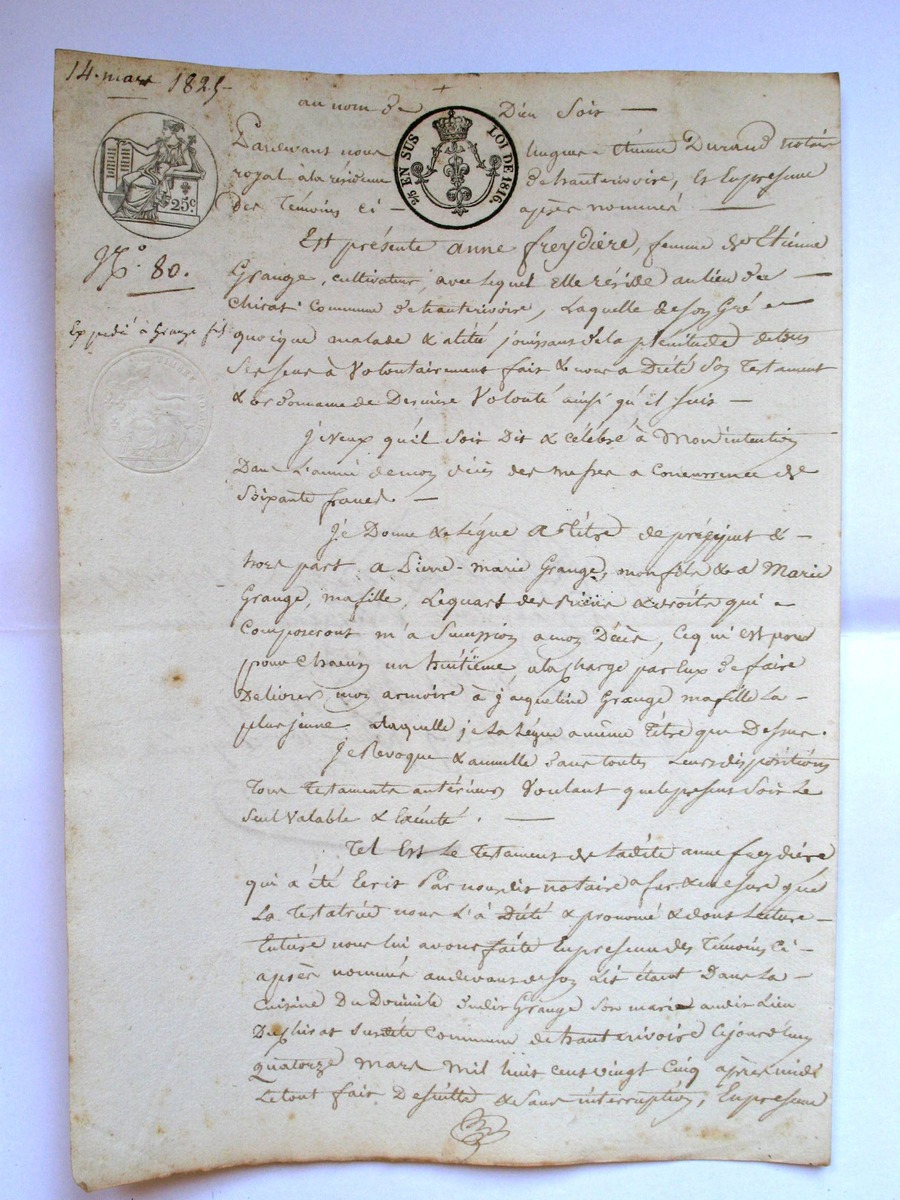 14. mars 1825
au nom de Dieu Soit —
25 EN SUS LOI DE 1816.
Pardevant nous hugues - Etienne Durand Notaire
royal à la résidence de hauterivoire, Et En presence
Des Témoins ci — après nommés —
25c
Est présente anne freydière, femme de Sr Etienne
N.° 80.
Grange, cultivateur, avec lequel elle réside au lieu du
Chirat Commune de hauterivoire, Laquelle de son Gré &
Expédié à Grange fils
quoique malade & alité jouissant de la plénitude de tous
Ses Sens à Volontairement fait & nous a Dicté Son Testament
& ordonnance de Derniere Volonté ainsi qu'il suit —
Je Veux qu'il Soit Dit & célébré à Mon intention
Dans L'année de mon décès des messes a Concurrence de
Soixante francs. —
Je Donne & Légue a Titre de préciput & —
hors part a Pierre-marie Grange, mon fils & a Marie
Grange, ma fille, Le quart des Biens & droits qui —
Composeront m'a Succession a mon Décès, Ce qui Est pour
pour Chacun un huitième a la charge par Eux de faire
Delivrer mon armoire à jacqueline Grange ma fille La —
plus jeune a laquelle je La Légue a même Titre que Dessus.
Je Revoque & annulle Dans toutes Leurs dispositions
Tous Testaments antérieurs Voulant que le present Soit Le
Seul Valable & Exécuté. —
Tel Est Le Testament de Ladite anne freydière
qui a été Ecrit Par nous dit notaire a fur & mesure que
La Testatrice nous L'à Dicté & prononcé & dont Lecture —
Entiere nous lui avons faite En presence des Témoins Ci —
après nommés au devant de son Lit étant Dans La —
Cuisine Du Domicile dudit Grange Son mari audit Lieu
Du Chirat Susdite Commune de hauterivoire Cejourd'hui
Quatorze mars mil huit cent vingt Cinq après midi
Le tout fait De suitte & Sans interruption, En presence